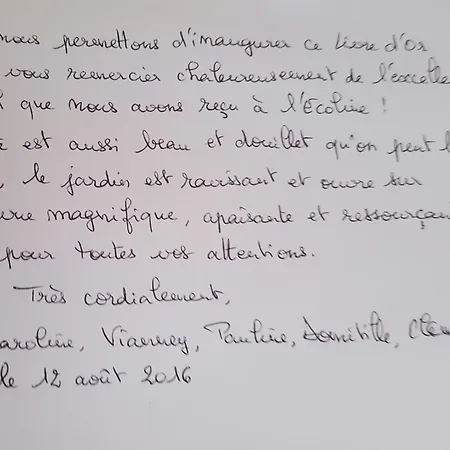 nous permettons d'inaugurer ce livre d'or
vous remercier chaleureusement de l'excelle
que nous avons reçu à l'Écoline !
est aussi beau et douillet qu'on peut l
, le jardin est ravissant et ouvre sur
ure magnifique, apaisante et ressourçan
pour toutes vos attentions.
Très cordialement,
aroline, Vianney, Pauline, Domitille, Clém
le 12 août 2016